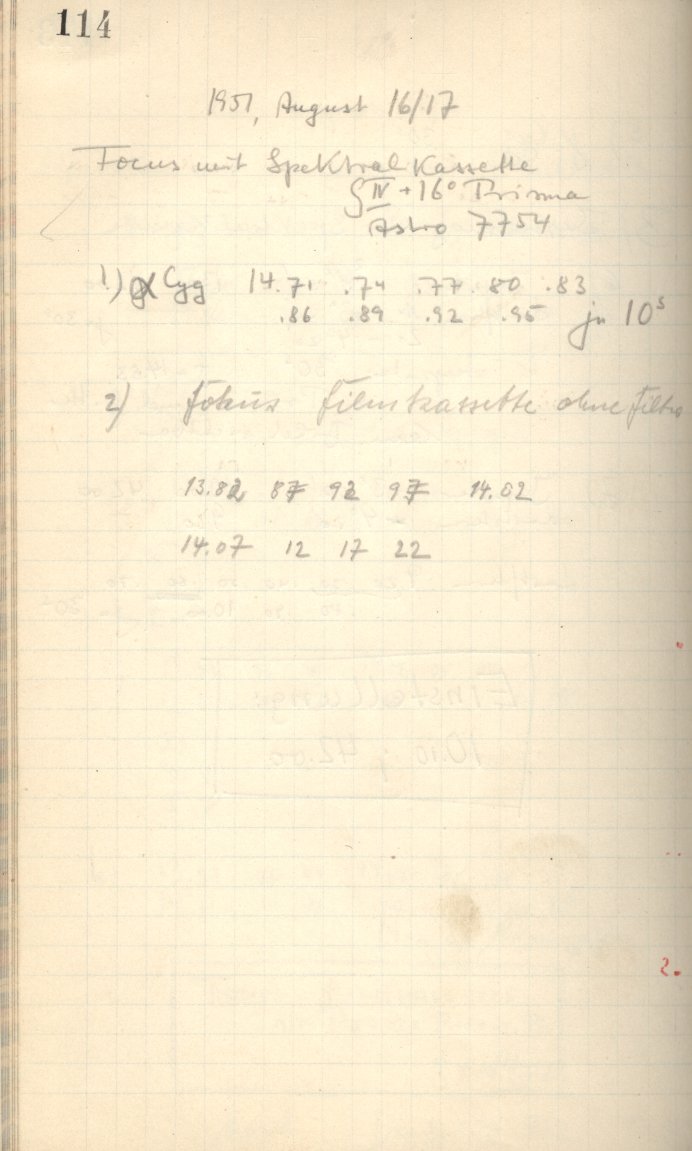 114
1951, August 16/17
Focus mit Spektralkassette
IV + 16° Prisma
Astro 7754
1.) α Cyg 14.71 .74 .77 .80 .83
.86 .89 .92 .95 je 10s
2) Fokus Filmkassette ohne Filter
13.82 87 92 97 14.02
14.07 12 17 22
Einstellung:
10.10 ; 42.00
2.